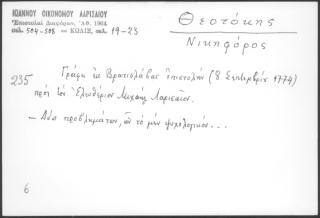 ΙΩΑΝΝΟΥ ΟΙΚΟΝΟΜΟΥ ΛΑΡΙΣΑΙΟΥ
Ἐπιστολαὶ Διαφόρων, Ἀθ. 1964
σελ. 504-508 — ΚΩΔΙΞ, σελ. 19-23
Θεοτόκης
Νικηφόρος
235 Γράφει ἐκ Βρατισλάβας ἐπιστολὴν (8 Σεπτεμβρίου 1774)
πρὸς τὸν Ἐλευθέριον Μιχαὴλ Λαρισαῖον.
— Δύο προβλημάτων, ὧν τὸ μὲν ψυχολογικόν...
6